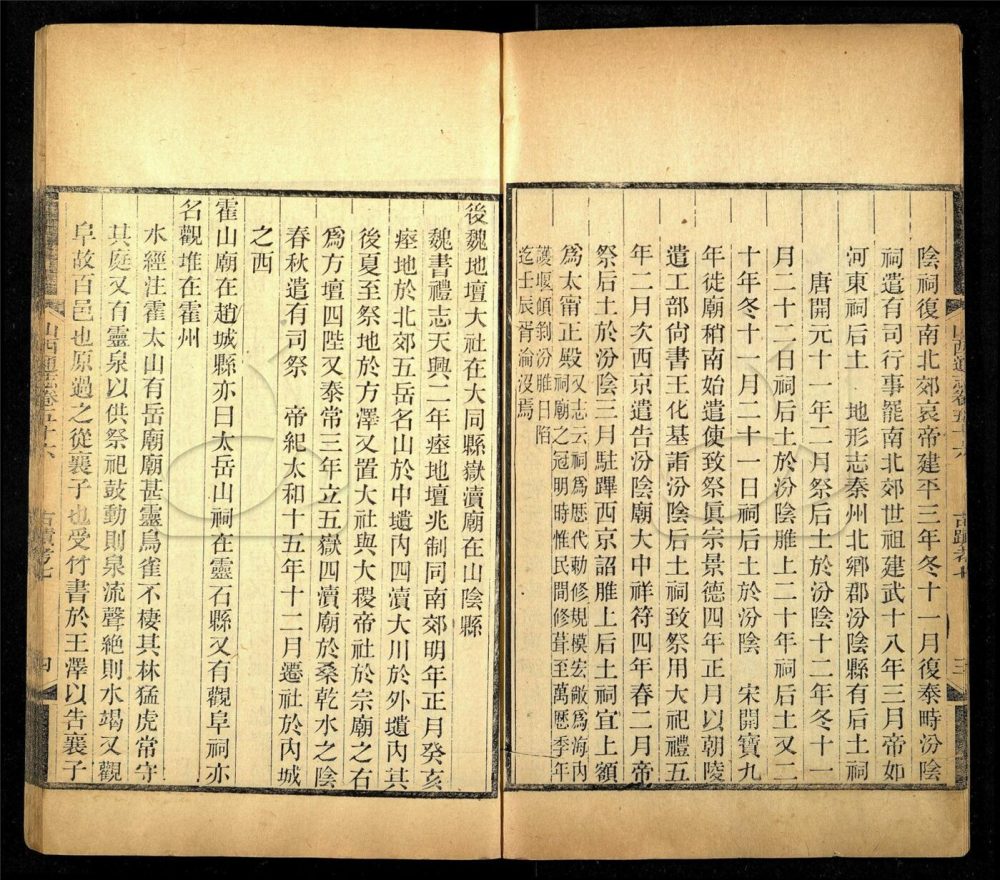 陰祠復南北郊哀帝建平三年冬十一月復泰畤汾陰
祠遣有司行事罷南北郊世祖建武十八年三月帝如
河東祠后土　地形志秦州北鄉郡汾陰縣有后土祠
唐開元十一年二月祭后土於汾陰十二年冬十一
月二十二日祠后土於汾陰脽上二十年祠后土又二
十年冬十一月二十一日祠后土於汾陰　宋開寶九
年徙廟稍南始遣使致祭眞宗景德四年正月以朝陵
遣工部尚書王化基詣汾陰后土祠致祭用大祀禮五
年二月次西京遣告汾陰廟大中祥符四年春二月帝
祭后土於汾陰三月駐蹕西京詔脽上后土祠宜上額
爲太甯正殿又志云祠爲歷代勅修規模宏敞爲海內
祠廟之冠明時惟民間修葺至萬歷季年
護堰傾剝汾脽日陷
迄壬辰胥淪沒焉
山西通志卷五十六
古蹟考七
三
後魏地壇大社在大同縣嶽瀆廟在山陰縣
魏書禮志天興二年瘞地壇兆制同南郊明年正月癸亥
瘞地於北郊五岳名山於中壝內四瀆大川於外壝內其
後夏至祭地於方澤又置大社與大稷帝社於宗廟之右
爲方壇四陛又泰常三年立五嶽四瀆廟於桑乾水之陰
春秋遣有司祭　帝紀太和十五年十二月遷社於內城
之西
霍山廟在趙城縣亦曰太岳山祠在靈石縣又有觀阜祠亦
名觀堆在霍州
水經注霍太山有岳廟廟甚靈鳥雀不棲其林猛虎常守
其庭又有靈泉以供祭祀鼓動則泉流聲絕則水竭又觀
阜故百邑也原過之從襄子也受竹書於王澤以告襄子
山西通志卷五十六
古蹟考七
四